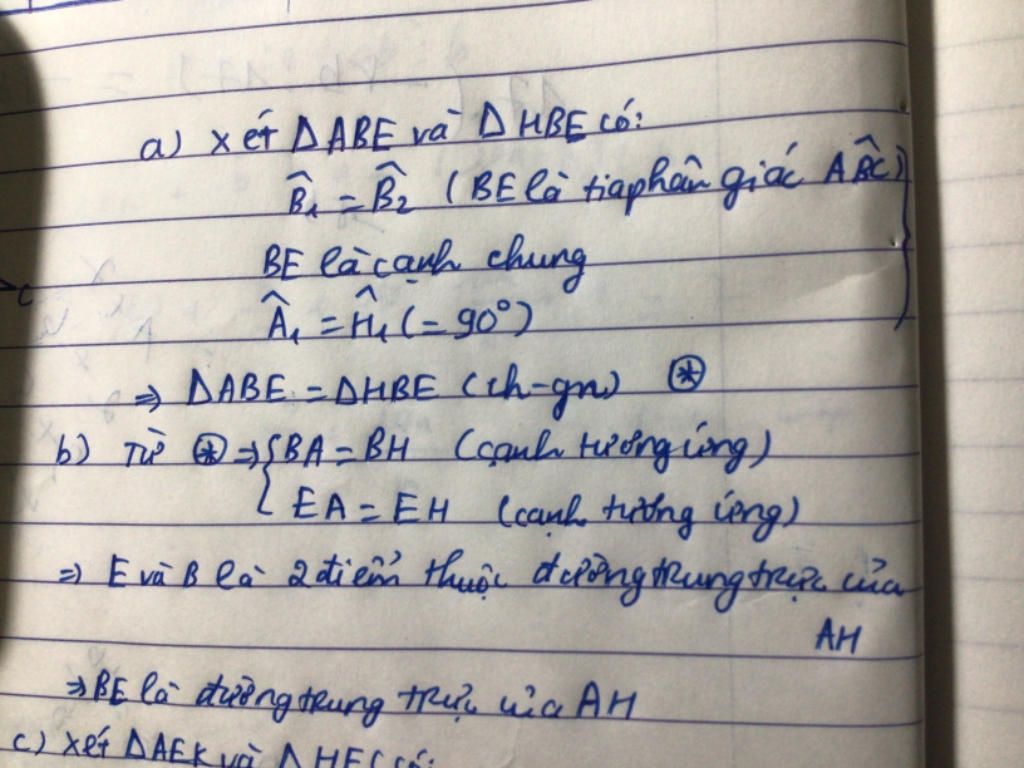 a) Xét ΔABE và ΔHBE có:
B̂₁ = B̂₂ (BE là tia phân giác AB̂C)
BE là cạnh chung
Â₁ = Ĥ₁ (= 90°)
⇒ ΔABE = ΔHBE (ch-gn) ⊛
b) Từ ⊛ ⇒ { BA = BH (cạnh tương ứng)
EA = EH (cạnh tương ứng)
⇒ E và B là 2 điểm thuộc đường trung trực của
AH
⇒ BE là đường trung trực của AH
c) Xét ΔAEK và ΔHEC có: